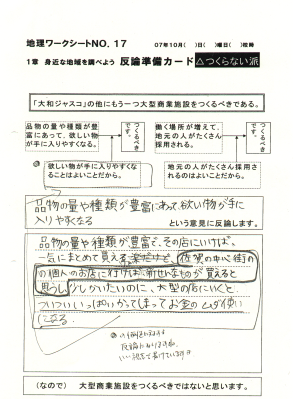 地理ワークシートNO. 17
07年10月( )日( )曜日( )校時
1章 身近な地域を調べよう 反論準備カード △つくらない派
「大和ジャスコ」の他にもう一つ大型商業施設をつくるべきである。
品物の量や種類が豊富にあって、欲しい物が手に入りやすくなる。
つくるべきです。
働く場所が増えて、地元の人がたくさん採用される。
つくるべきです。
欲しい物が手に入りやすくなることはよいことだから。
地元の人がたくさん採用されるのはよいことだから。
品物の量や種類が豊富にあって、欲しい物が手に
入りやすくなる
という意見に反論します。
品物の量や種類が豊富で、その店にいけば、
一気にまとめて買える
佐賀の中心街の
の個人のお店に行けば
が買えると
思うし
少ししかいたいのに、大型の店にいくと、
ついついいっぱいかってしまってお金のムダ使い
になる。
(なので) 大型商業施設をつくるべきではないと思います。